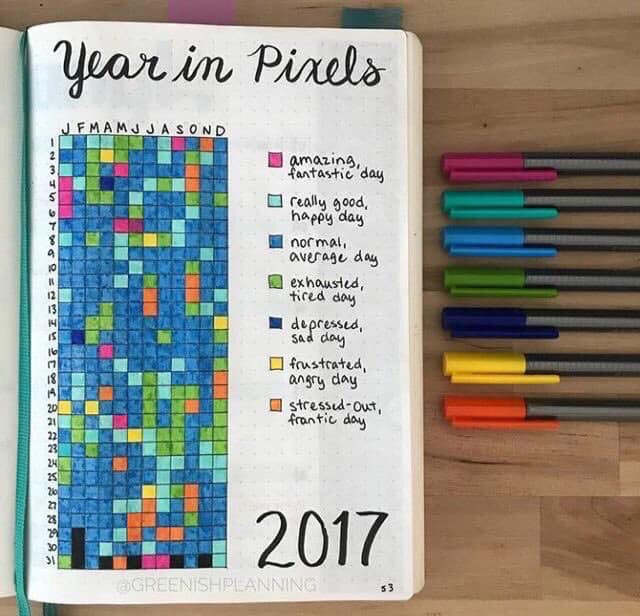 Year in Pixels
J F M A M J J A S O N D
1
2
3
4
5
6
7
8
9
10
11
12
13
14
15
16
17
18
19
20
21
22
23
24
25
26
27
28
29
30
31
amazing,
fantastic day
really good,
happy day
normal,
average day
exhausted,
tired day
depressed,
sad day
frustrated,
angry day
stressed-out,
frantic day
2017
@GREENISHPLANNING
53